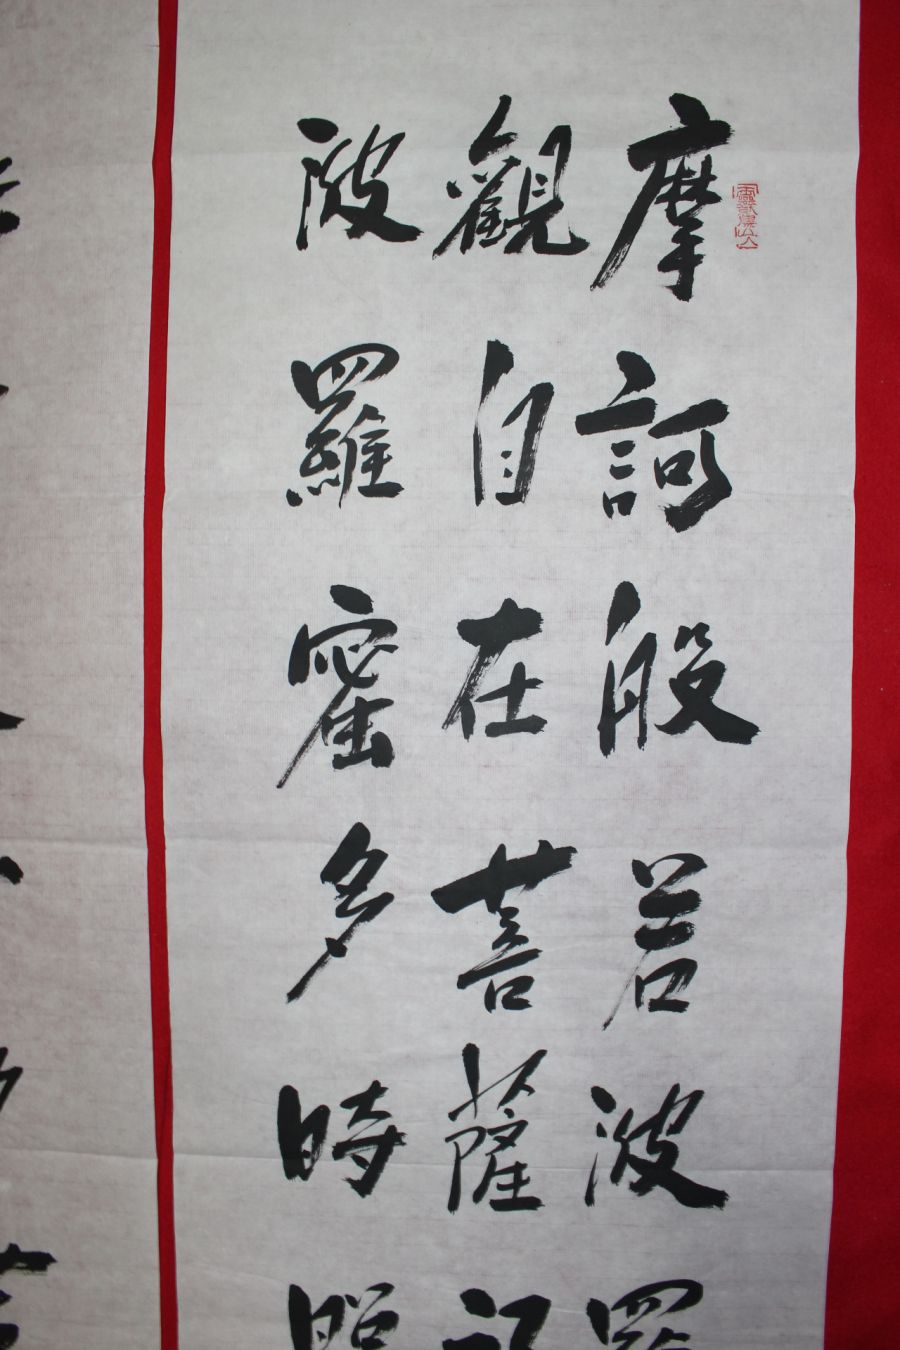 摩訶般若波羅
觀自在菩薩
波羅蜜多時照